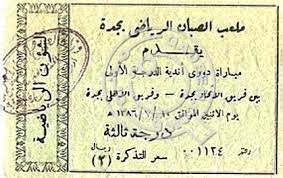 ملعب الصبان الرياضى بجدة
يقدم
مباراة دورى أندية الدرجة الأولى
بين فريق الاتحاد بجدة - وفريق الأهلى بجدة
يوم الاثنين الموافق ١٠ / ٧ / ١٣٨٦ هـ
درجة ثالثة
رقم ٠٠١١٢٤ سعر التذكرة (٢) ريال
لشئون الرياضية